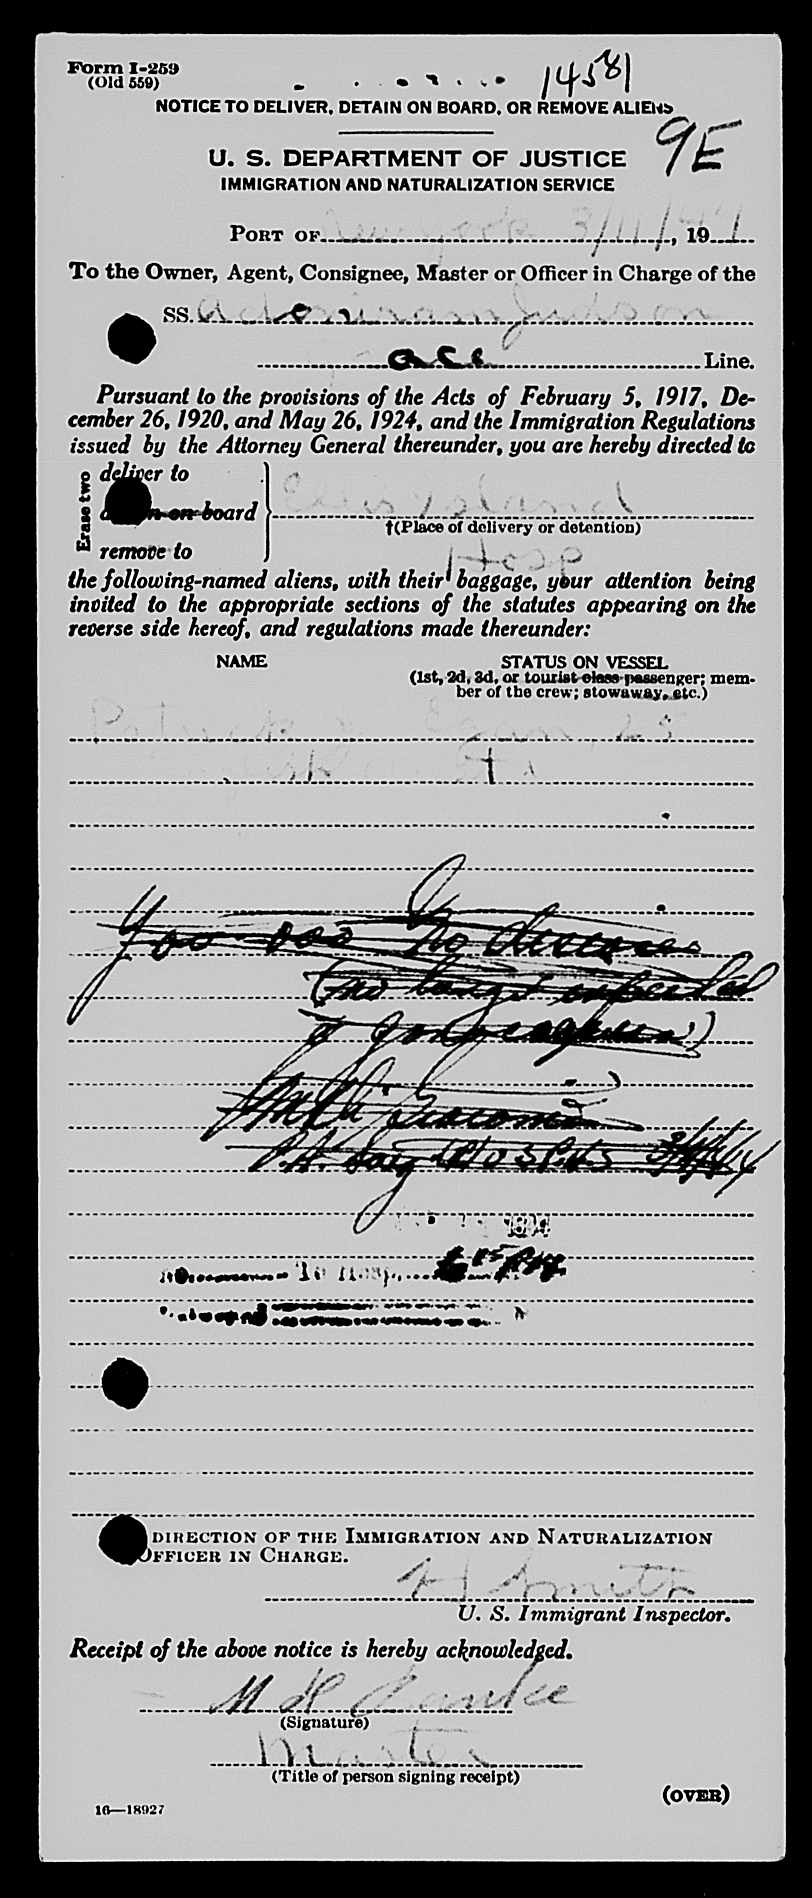 Form I-259
(Old 559)
14581
NOTICE TO DELIVER, DETAIN ON BOARD, OR REMOVE ALIENS
9E
U. S. DEPARTMENT OF JUSTICE
IMMIGRATION AND NATURALIZATION SERVICE
PORT OF New York 3/11/44, 19
To the Owner, Agent, Consignee, Master or Officer in Charge of the
SS. Adoniram Judson
Line.
Pursuant to the provisions of the Acts of February 5, 1917, De-
cember 26, 1920, and May 26, 1924, and the Immigration Regulations
issued by the Attorney General thereunder, you are hereby directed to
Erase two
deliver to
on board
remove to
Ellis Island
†(Place of delivery or detention)
Hosp
the following-named aliens, with their baggage, your attention being
invited to the appropriate sections of the statutes appearing on the
reverse side hereof, and regulations made thereunder:
NAME
STATUS ON VESSEL
(1st, 2d, 3d, or tourist class passenger; mem-
ber of the crew; stowaway, etc.)
Patrick Egan, 25
You
(no longer
To Hosp.
DIRECTION OF THE IMMIGRATION AND NATURALIZATION
OFFICER IN CHARGE.
H Smith
U. S. Immigrant Inspector.
Receipt of the above notice is hereby acknowledged.
M
(Signature)
Master
(Title of person signing receipt)
(OVER)
16—18927